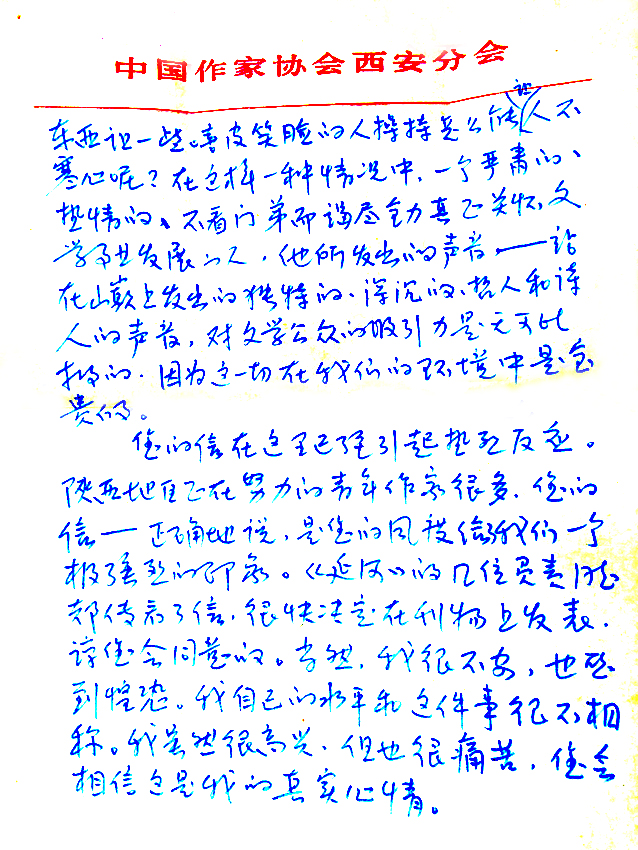 中国作家协会西安分会
东西让一些嘻皮笑脸的人操持怎么能让人不
寒心呢?在这样一种情况中,一个严肃的、
热情的、不看门弟而竭尽全力真正关怀文
学事业发展的人,他所发出的声音——站
在山巅上发出的独特的、深沉的、哲人和诗
人的声音,对文学公众的吸引力是无可比
拟的。因为这一切在我们的环境中是宝
贵的。
您的信在这里已经引起热烈反应。
陕西地区正在努力的青年作家很多,您的
信——正确地说,是您的风度给我们一个
极强烈的印象。《延河》的几位负责同志
都传看了信,很快决定在刊物上发表,
谅您会同意的。当然,我很不安,也感
到惶恐。我自己的水平和这件事很不相
称。我虽然很高兴,但也很痛苦,您会
相信这是我的真实心情。